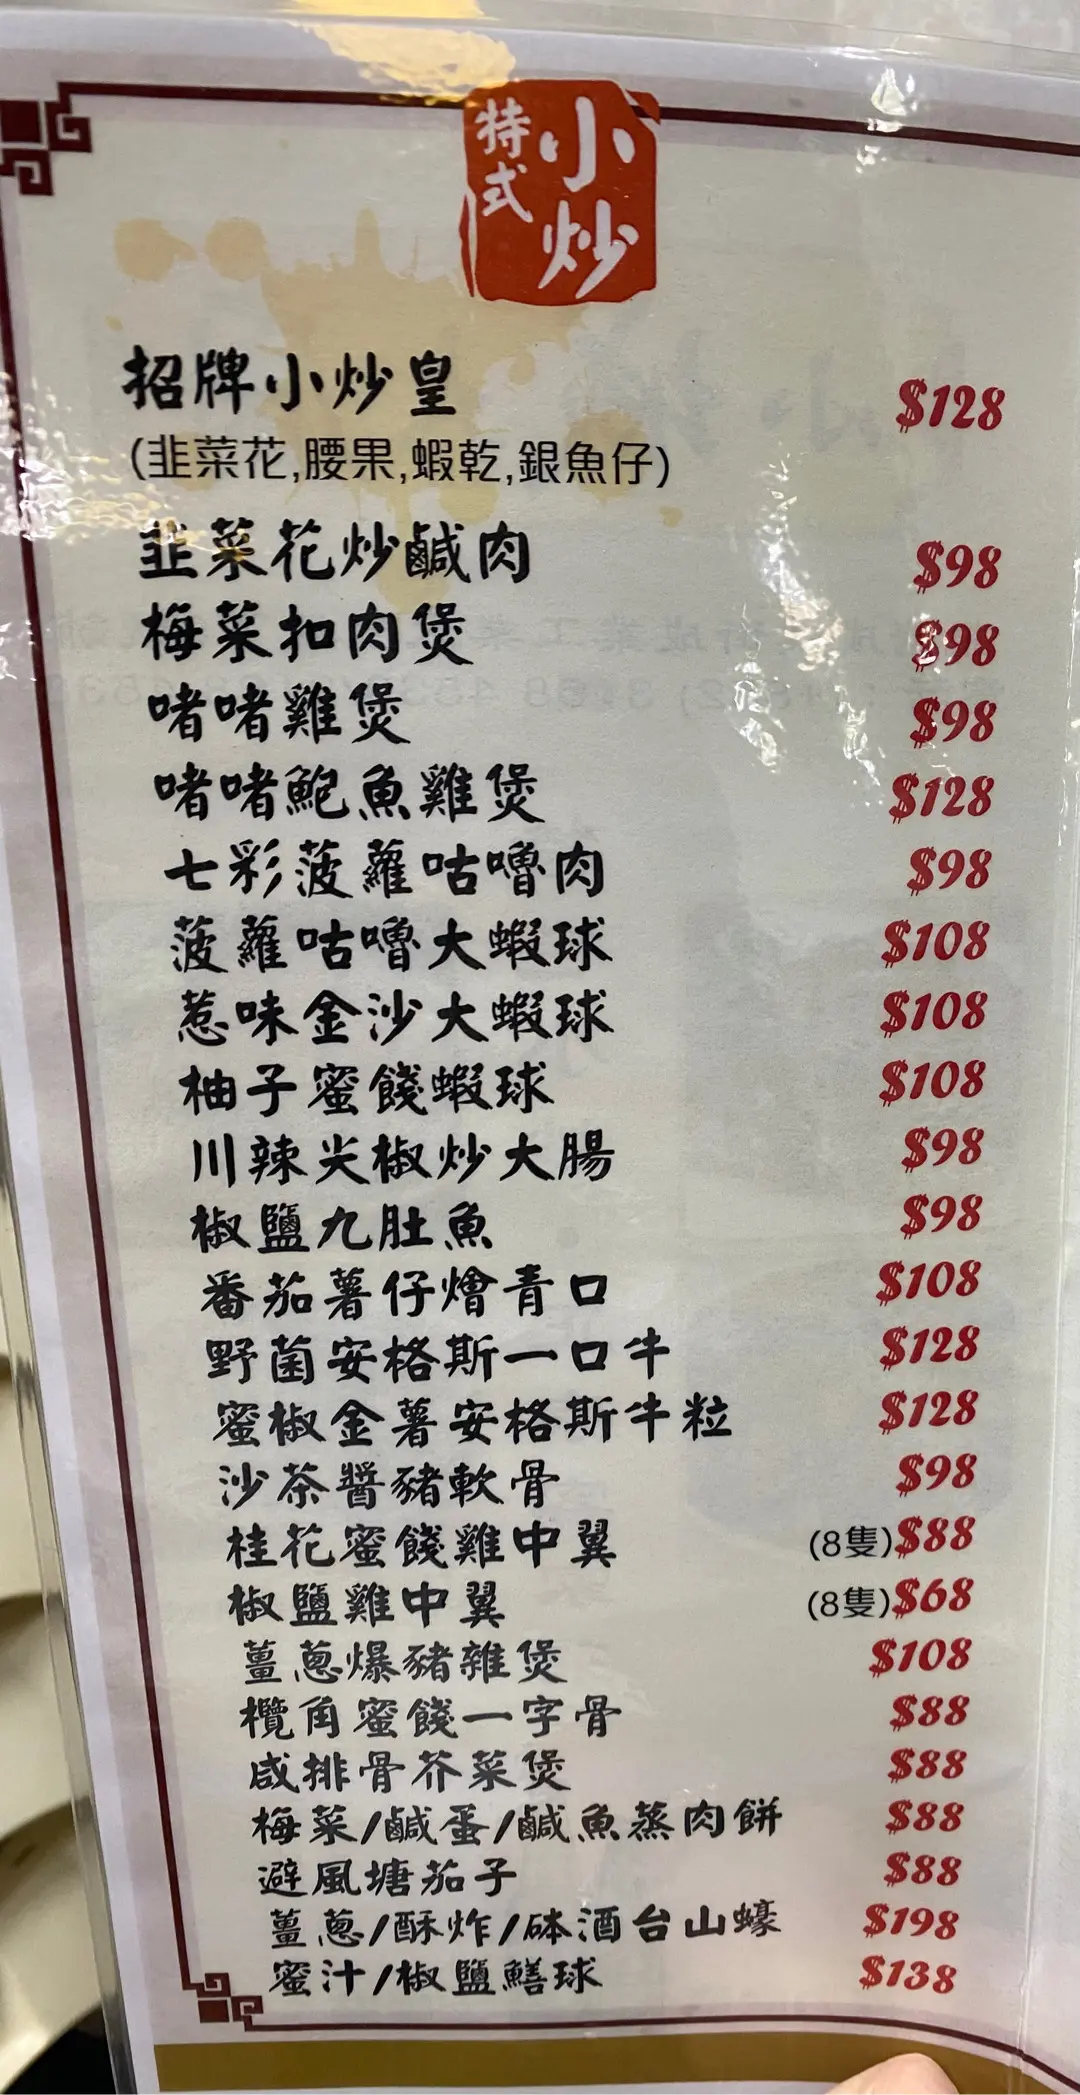 特式
小炒
招牌小炒皇 $128
(韭菜花,腰果,蝦乾,銀魚仔)
韭菜花炒鹹肉 $98
梅菜扣肉煲 $98
啫啫雞煲 $98
啫啫鮑魚雞煲 $128
七彩菠蘿咕嚕肉 $98
菠蘿咕嚕大蝦球 $108
惹味金沙大蝦球 $108
柚子蜜餞蝦球 $108
川辣尖椒炒大腸 $98
椒鹽九肚魚 $98
番茄薯仔燴青口 $108
野菌安格斯一口牛 $128
蜜椒金薯安格斯牛粒 $128
沙茶醬豬軟骨 $98
桂花蜜餞雞中翼 (8隻)$88
椒鹽雞中翼 (8隻)$68
薑蔥爆豬雜煲 $108
欖角蜜餞一字骨 $88
咸排骨芥菜煲 $88
梅菜/鹹蛋/鹹魚蒸肉餅 $88
避風塘茄子 $88
薑蔥/酥炸/砵酒台山蠔 $198
蜜汁/椒鹽鱔球 $138